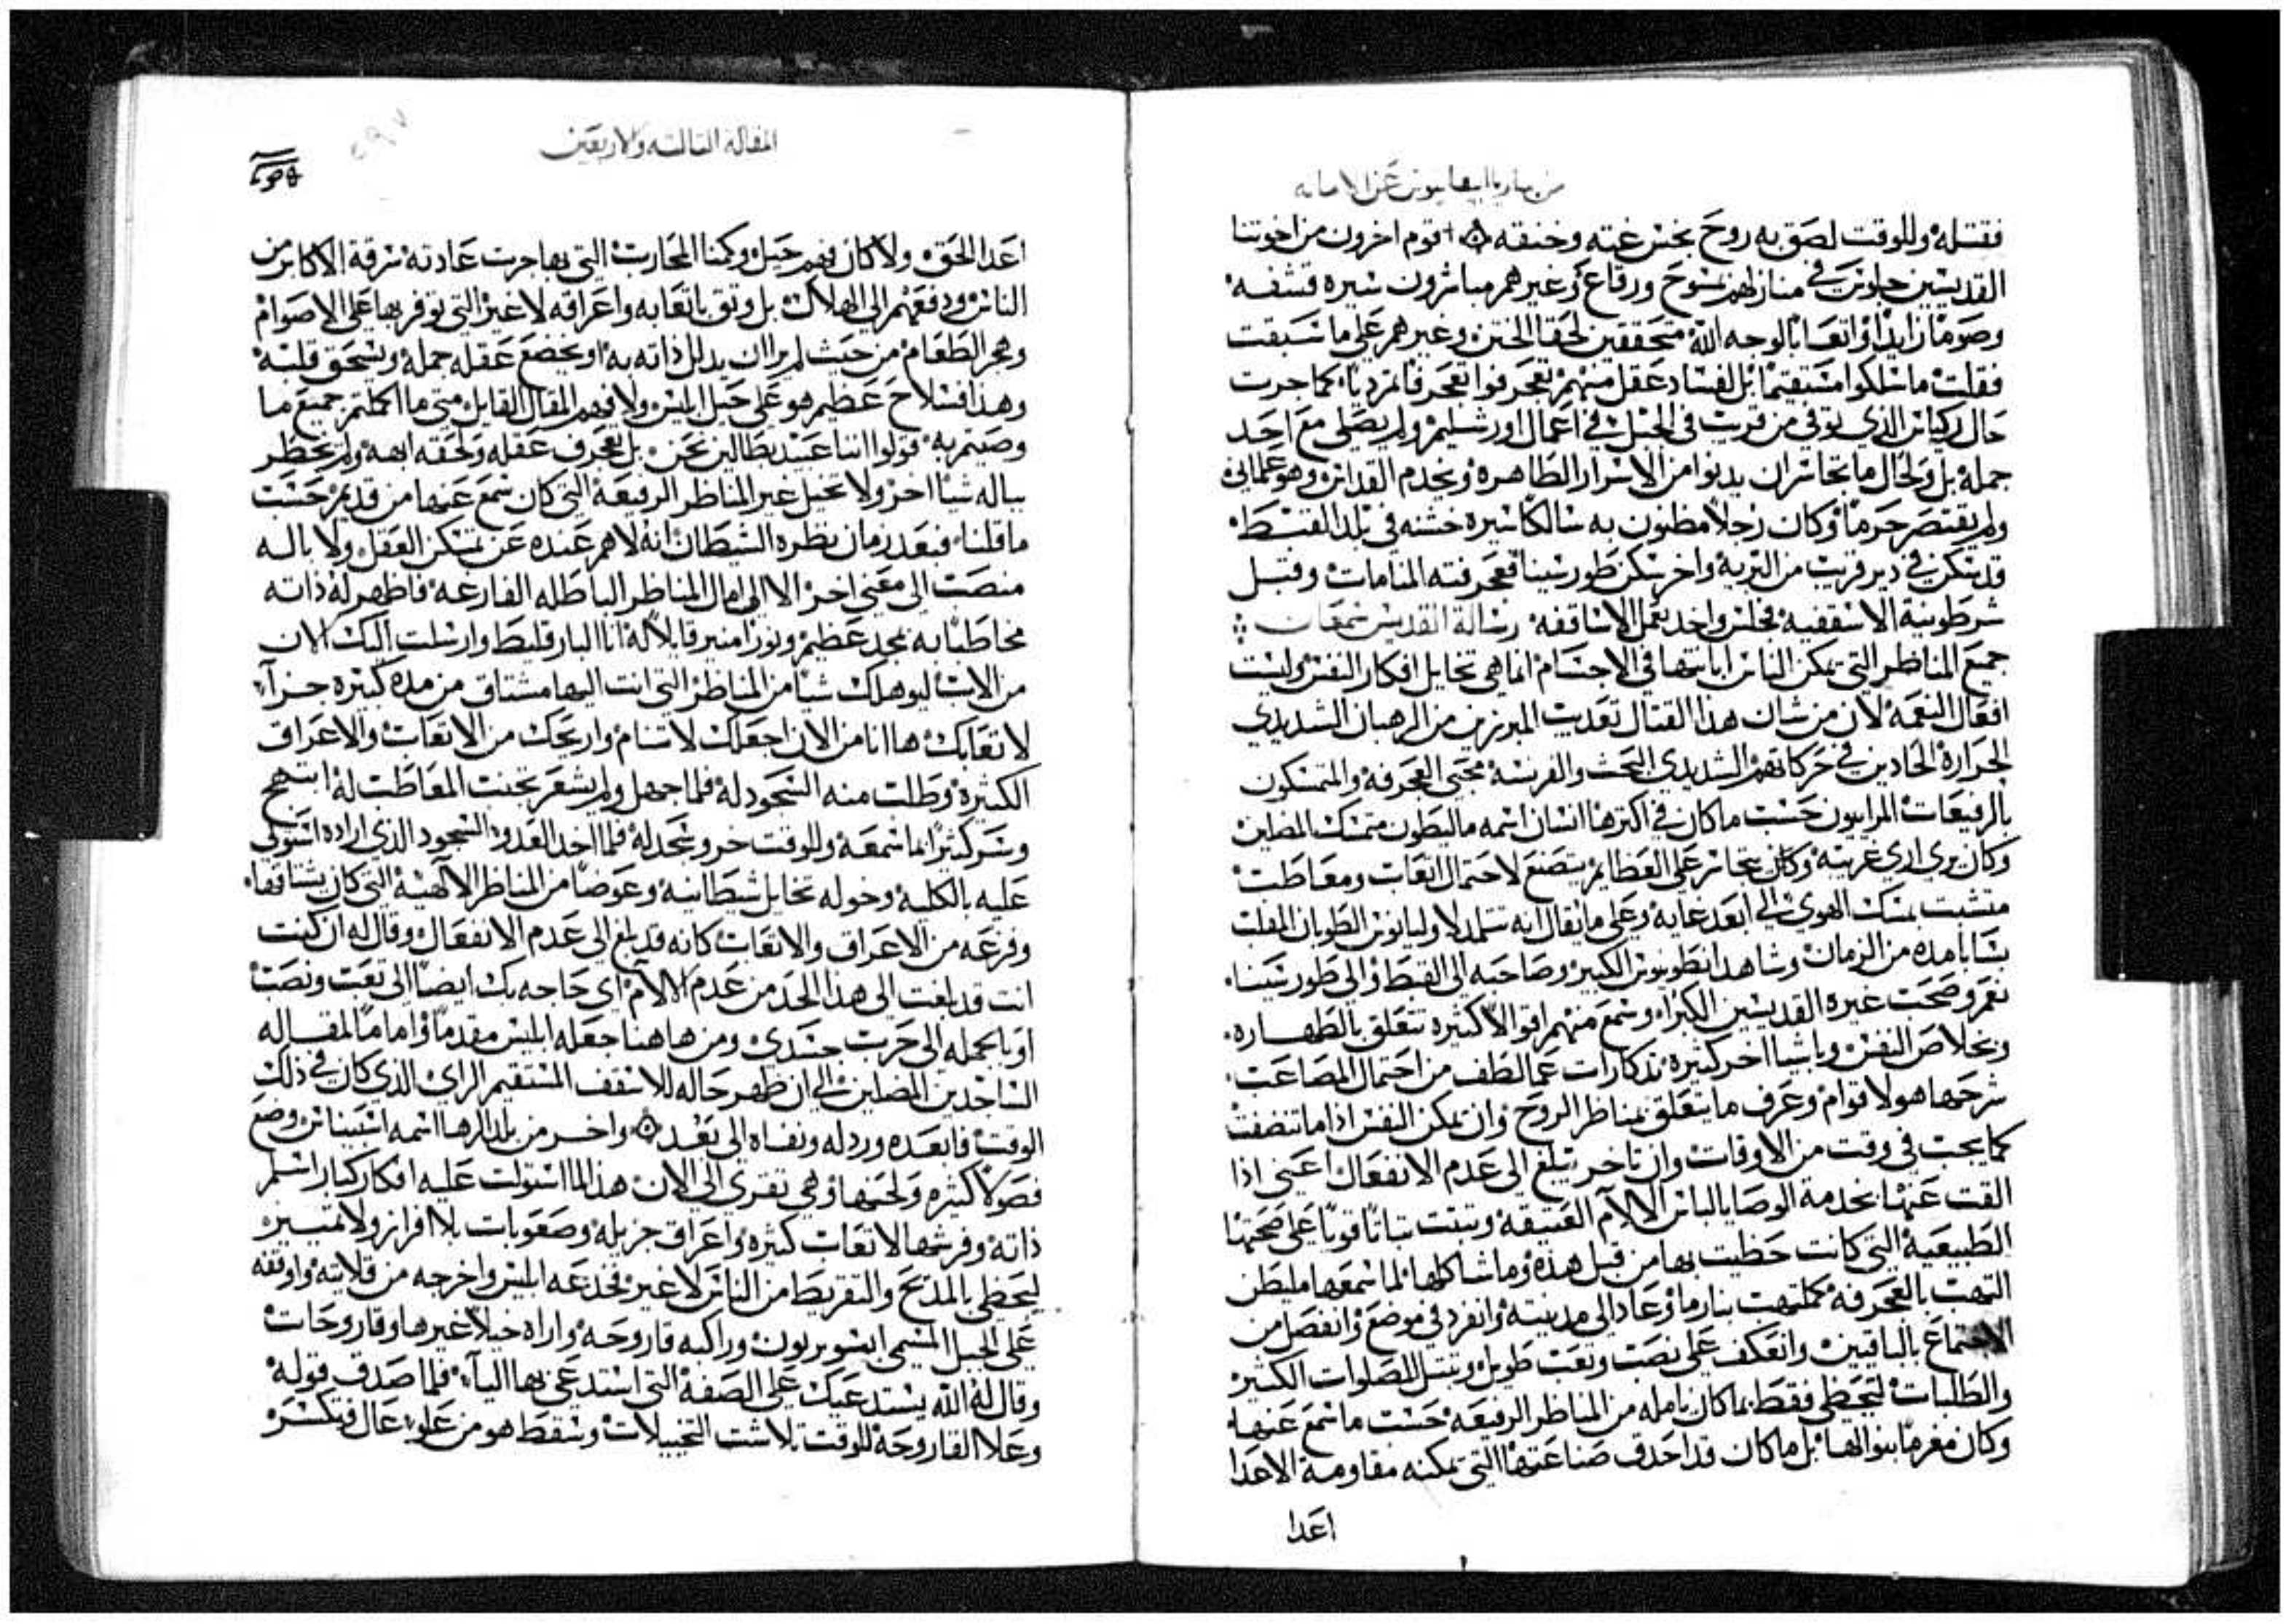 فقتله وللوقت لصق به روح نجس غته وخنقه ۞ قوم اخرون من اخوتنا
القديسين جلوس في منازلهم بمسوح ورقاع وغيرهم مباشرون سيره قشفه
وصوما زايدا واتعابا لوجه الله متحققين لحقا الختن وغيرهم على ما سبقت
فقلت ما سلكوا مستقيما بل لفساد عقل منهم تعجرفوا تعجرفا مرديا كما جرت
حال الذي توفي من قريب في الجبل في اعمال اورشليم ولم يصلي مع احد
جمله بل ولحال ما تجاسر ان يدنوا من الاسرار الطاهره ويخدم القداس وهو علماني
ولم يقتصر جرما وكان رجلا مظنون به سالكا سيره خشنه في بلد القسط
قد سكن في دير قريب من التربه واخر سكن طور سينا فعجرفته المنامات وقبل
شرطونية الاسقفيه فجلس واحد بعمل الاساقفه رسالة القديس سمعان
جميع المناظر التي يمكن الناس ابانتها في الاجسام انما هي تخايل افكار النفس وليست
افعال النعمه لان من شان هذا القتال تعذيب المبرزين من الرهبان الشديدي
الحراره الحادين في حركاتهم الشديدي البحث والفريسه محبي العجرفه والمتمسكون
بالرفيعات المرايون حسب ما كان في اكثرها انسان اسمه ماليطون متمسك المصلين
وكان يرى اري غريبه وكان يتجاسر على العظايم يتصنع لاحتمال اتعاب ومعاطب
متشبث بمسك الهوى الى ابعد غايه وعلى ما يقال انه تتلمذ لاوليانوس الطوبان الملقب
بسابا مده من الزمان وشاهد انطونيوس الكبير وصاحبه الى القبط والى طور سينا
نعم وصحب غيره القديسين الكبرا وسمع منهم اقوالا كثيره تتعلق بالطهاره
وبخلاص النفس وباشيا اخر كثيره تذكارات عما لطف من احتمال المصاعب
شرحها هولا قوام وعرف ما يتعلق بمناظر الروح وان يمكن النفس اذا ما تنضفت
كما يجب في وقت من الاوقات وان تاخر يبلغ الى عدم الانفعال اعني اذا
القت عنها بخدمة الوصايا الباس الالام العتيقه وتبتت تباتا قويا على صحتها
الطبيعيه التي كانت حظيت بها من قبل هذه وما شاكلها لما سمعها مليطن
التهب بالعجرفه كملتهب بنار ما وعاد الى مدينته وانفرد في موضع وانفصل من
الاجتماع بالباقين وانعكف على نصب وتعب طويل وبتسل للصلوات الكثيره
والطلبات ليحظى فقط بما كان يامله من المناظر الرفيعه حسب ما سمع عنها
وكان مغرما بنوالها بل ما كان قد احدق صناعتها التي تمكنه مقاومة الاعدا
اعدا
المقاله التالته ولاربعين
اعدا الحق ولا كان فهم حيل وكمنا المحارب التي بها جرت عادته سرقة الاكابر من
الناس ودفعهم الى الهلاك بل وتق باتعابه واعراقه لا غير التي توفر بها على الاصوام
وهجر الطعام من حيث لم يرا ان يدلل ذاته به او يخضع عقله جمله ويسحق قلبه
وهذا فسلاح عظيم هو على حيل ابليس ولا فهم المقال القايل متى ما اكملتم جميع ما
وصيتم به قولوا اننا عبيد بطالين نحن بل تعجرف عقله ولحقه ابهه ولم تخطر
بباله شيا اخر ولا تخيل غير المناظر الرفيعه التي كان سمع عنها من قديم حسب
ما قلنا فبعد زمان نظره الشيطان انه لا هم عنده عن تمسكن العقل ولا باله
منصب الى معنى اخر الا الى امال المناظر الباطله الفارغه فاظهر له ذاته
مخاطبا به بمجد عظيم ونورا منير قايلا له انا البارقليط وارسلت اليك الان
من الاب ليوهلك شيا من المناظر التي انت اليها مشتاق من مده كبيره جزآ
لاتعابك ها انا من الان اجعلك لا تنام واريحك من الاتعاب والاعراق
الكثيره وطلب منه السجود له فلما جهل ولم يشعر بخبث المعاطب له ابتهج
وسر كثيرا بما سمعه وللوقت خر وسجد له فلما اخد العدو السجود الذي اراده استولى
عليه بالكليه وخوله تخايل شيطانيه وعوضا من المناظر الالهيه التي كان يشتاقها
وفزعه من الاعراق والاتعاب كانه قد بلغ الى عدم الانفعال وقال له ان كنت
انت قد بلغت الى هذا الحد من عدم الالام اي حاجه بك ايضا الى تعب ونصب
او بالجمله الى حرب جسدي ومن هاهنا جعله ابليس مقدما واماما لمقاله
الساجدين المصلين الى ان ظهر حاله للاسقف المستقيم الراي الذي كان في ذلك
الوقت فابعده ورذله ونفاه الى بعد ۞ واخر من بلد الرها اسمه اسبيناس وضع
فصولا كثيره ولحنها وهي تقرى الى الان هذا لما استولت عليه افكار كبار اسلم
ذاته وفرشها لاتعاب كثيره واعراق جزيله وصعوبات بلا افراز ولا تمييز
ليحظى بالمديح والتقريظ من الناس لا غير فخدعه ابليس واخرجه من قلايته واوقفه
على الجبل المسمى وراكبه قاروحه واراه خيلا غيرها وقاروحات
وقال له الله يستدعيك على الصفه التي استدعى بها اليآ فلما صدق قوله
وعلا القاروحه للوقت تلاشت التخييلات وسقط هو من علو عال فتكسر